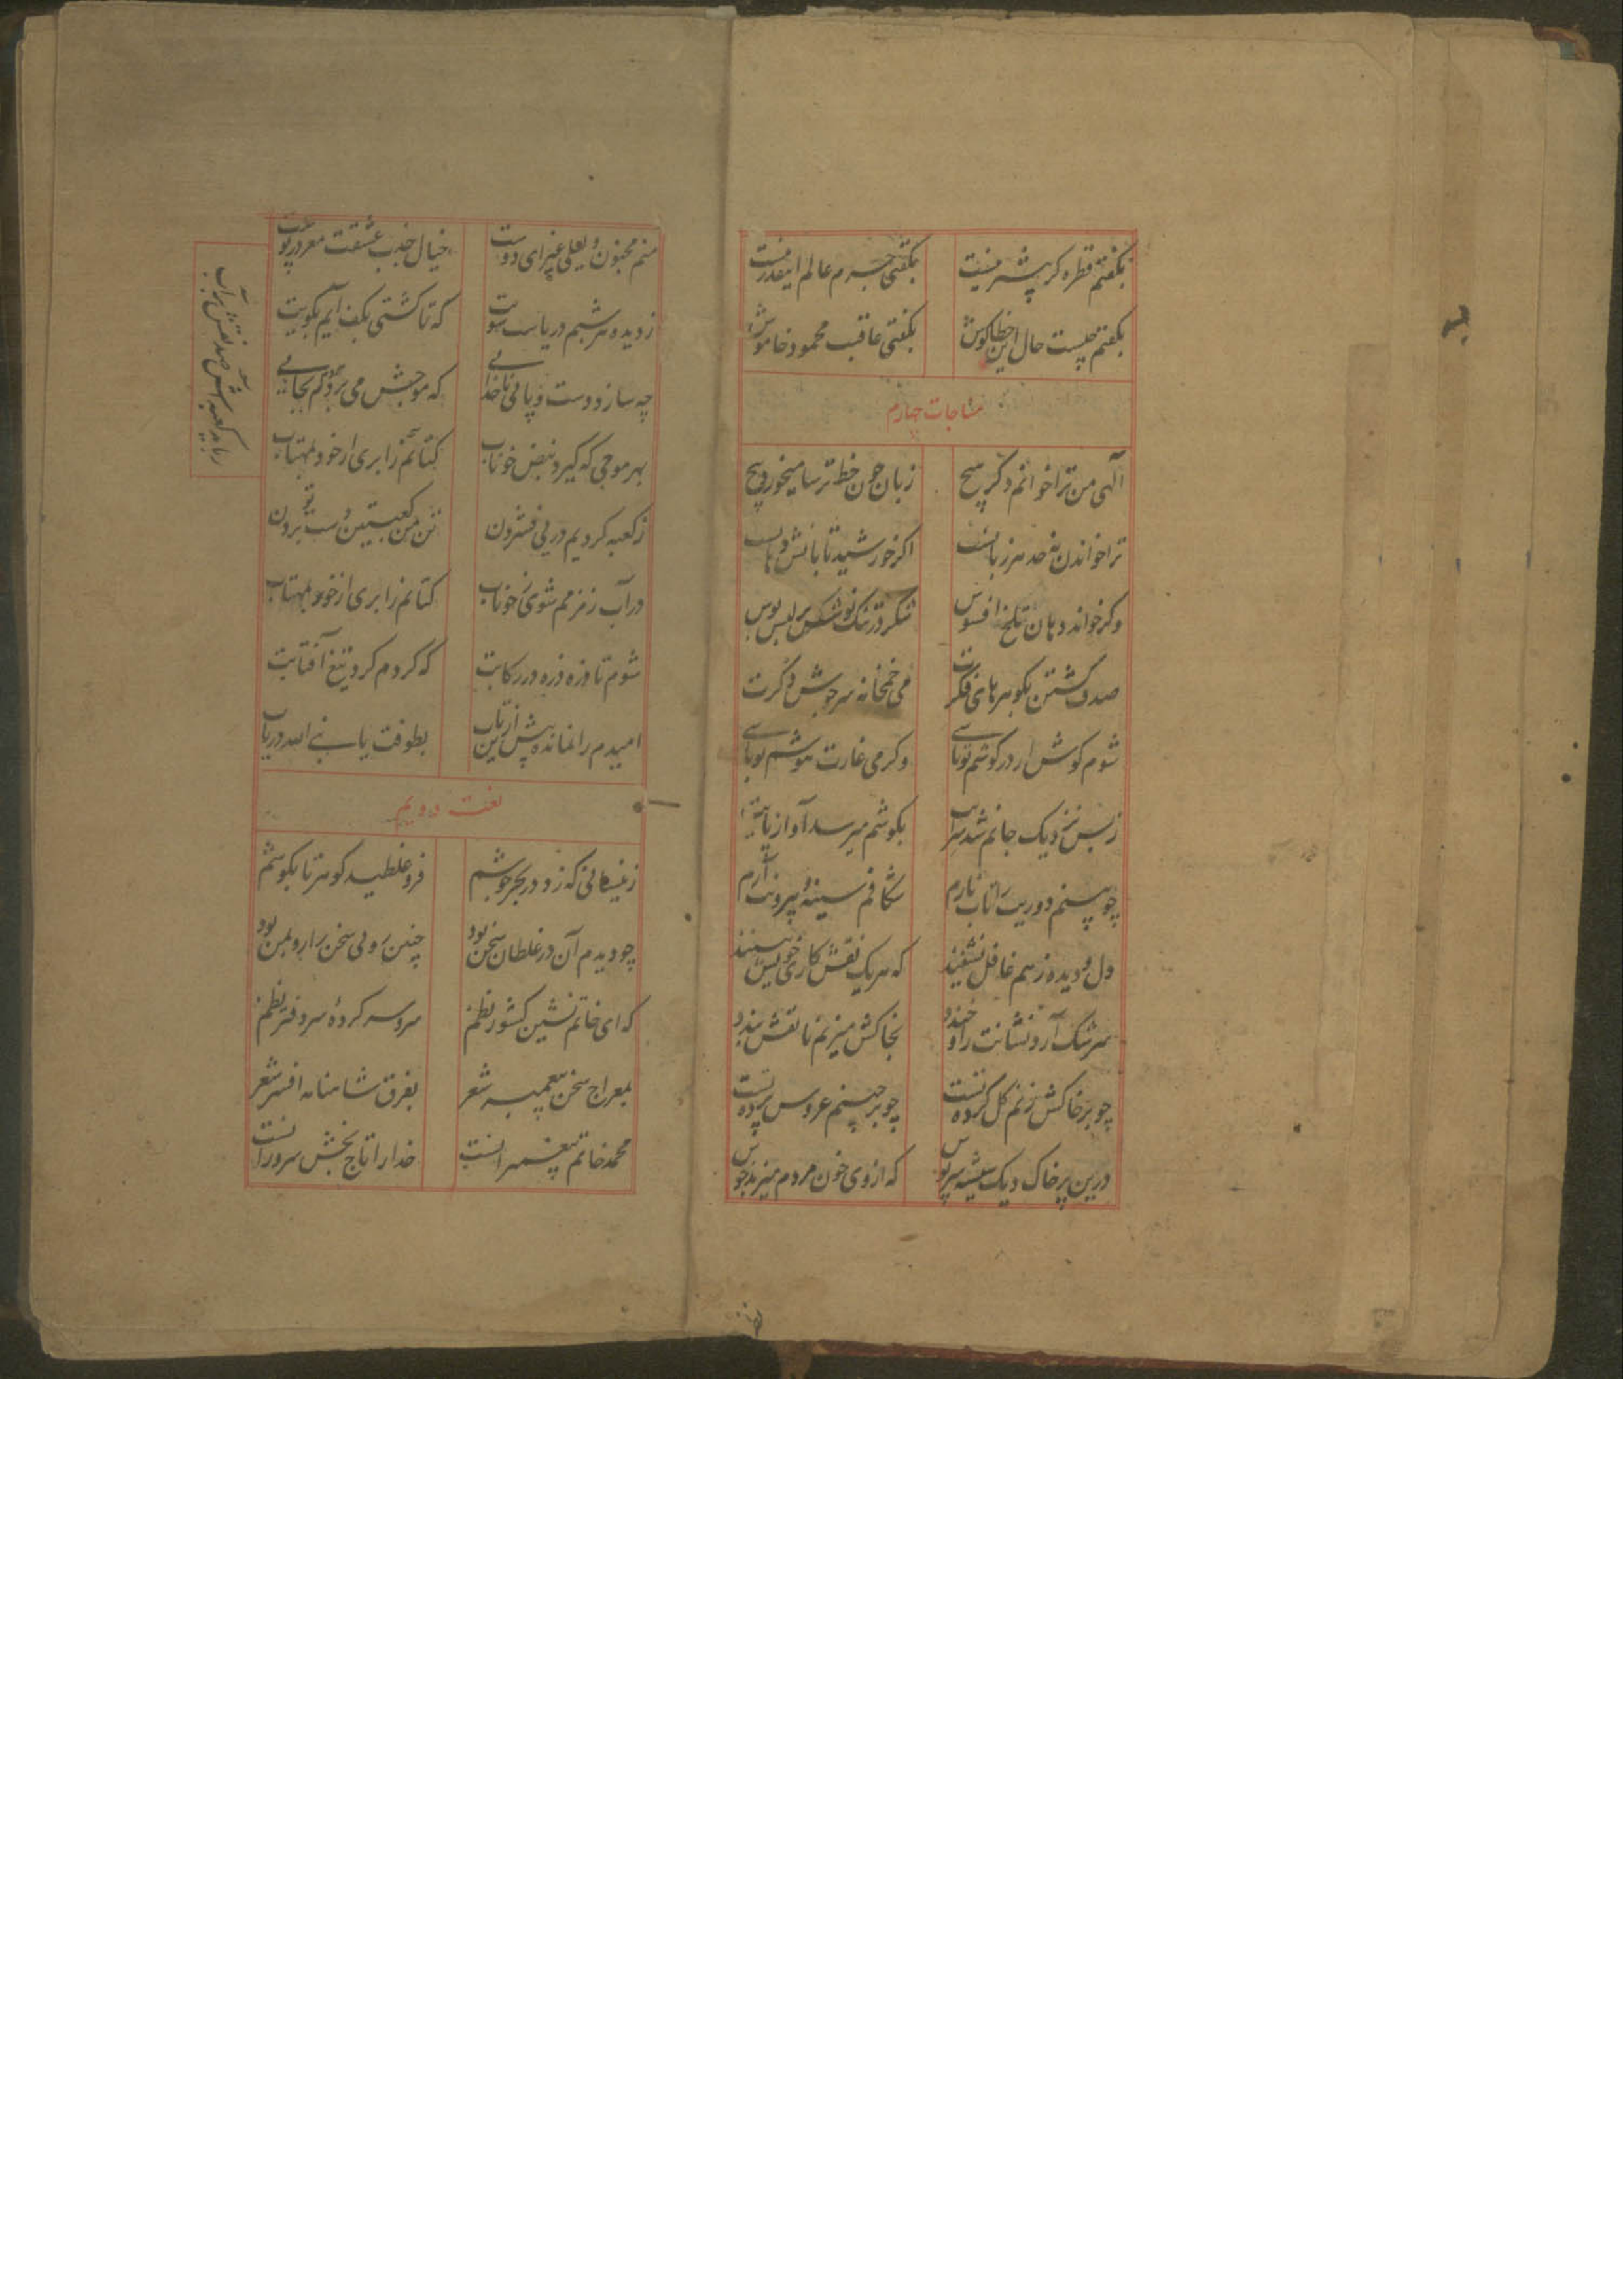 بگفتم قطره کر پشرمنیت بگفتی جرم عالم اینقدر نیست
بگفتم چیست حال این خطا کوش بگفتی عاقبت محمود خاموش
مناجات چهارم
الهی من ترا خوانم دگر هیچ زبان چون خط ترسا میخورد پیچ
ترا خواندن نه حد هر زبانست اگر خورشید تابانش دهانست
وگر خواند دهان تلخ افسوس شکر در تنگ بر لبش بوس
صدف گشتن بگوهرهای فکرت می خمخانه سرجوش ذکرت
شوم گوش ار در گوشم تو باشی وگر می غارت هوشم تو باشی
ز بس نزدیک جانم شد بگوشم میرسد آواز پایت
چو بینم دوریت را تاب نارم شکافم سینه و بیرونت آرم
دل و دیده ز هم غافل نشینند که هر یک نقش کار خویش بینند
سرشک آرد نشانت را و خندد بخاکش میزنم تا نقش بندد
چو بر خاکش زنم گل کرده تست چو برچینم عروس پرده تست
درین پرخاک دیک شیشه سرپوش که از وی خون مردم میزند جوش
منم مجنون و لیلی غیر ای دوست خیال جذب عشقت مغز در پوست
ز دیده هر شبم دریاست سویت که تا کشتی بکف آیم بکویت
چه سازد دست و پائی ناخدائی که موجش می برد هر دم بجائی
بهر موجی که گیرد نبض خوناب کتانم را بری از خود بمهتاب
ز کعبه کردیم در پی فسردن تن من کعبتین و دست تو بردن
در آب زمزمم شوی ز خوناب کتانم را بری از خود بمهتاب
شوم تا ذره ذره در رکابت که گردم گرد تیغ آفتابت
امیدم را نمانده پیش ازین تاب بطوفت یا نبی الله دریاب
نعت دویم
ز نیسانی که زد در بحر جوشم فرو غلطید گوهر تا بگوشم
چو دیدم آن در غلطان سخن بود چنین روی سخن را رو بمن بود
که ای خاتم نشین کشور نظم سر و سرکرده سر دفتر نظم
بمعراج سخن پیغمبر شعر بفرق شاهنامه افسر شعر
محمد خاتم پیغمبرانست خدا را تاج بخش سرورانست